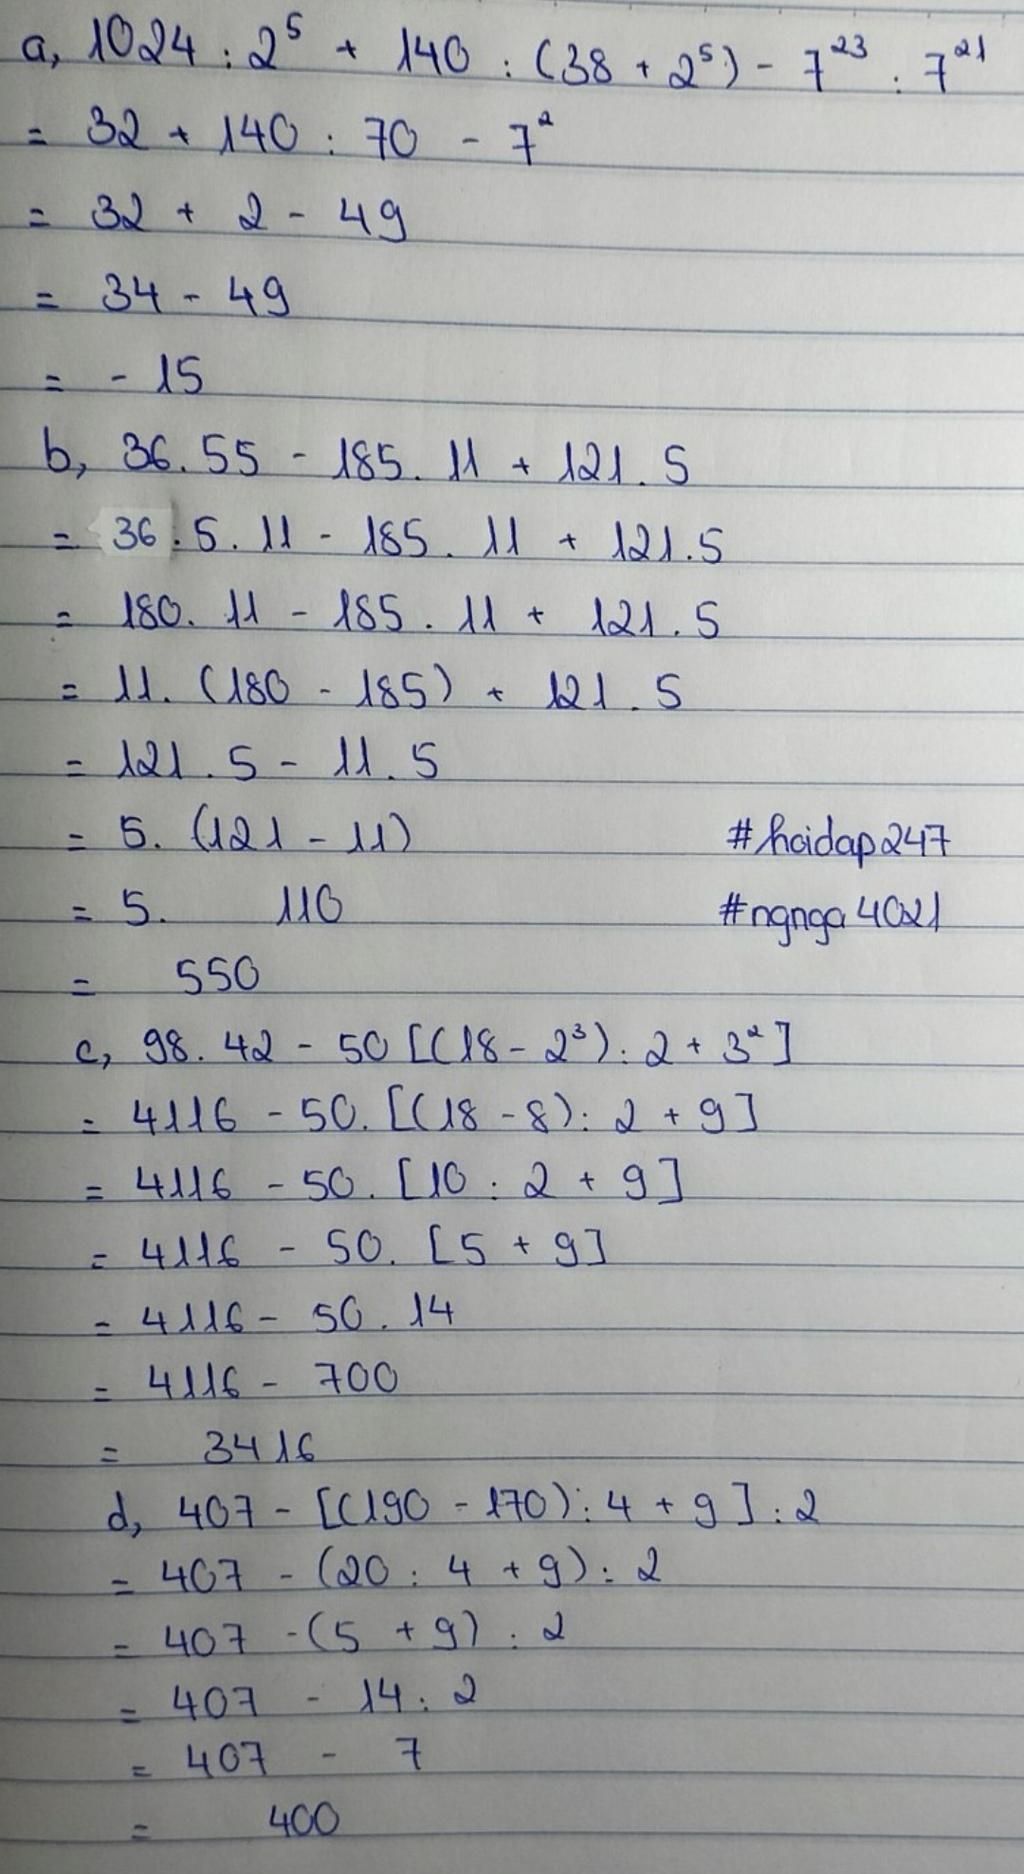 a, 1024 : 2⁵ + 140 : (38 + 2⁵) - 7²³ : 7²¹
= 32 + 140 : 70 - 7²
= 32 + 2 - 49
= 34 - 49
= - 15
b, 36 . 55 - 185 . 11 + 121 . 5
= 36 . 5 . 11 - 185 . 11 + 121 . 5
= 180 . 11 - 185 . 11 + 121 . 5
= 11 . (180 - 185) + 121 . 5
= 121 . 5 - 11 . 5
= 5 . (121 - 11)
#hoidap247
= 5 . 110
#ngnga4021
= 550
c, 98 . 42 - 50 [(18 - 2³) : 2 + 3²]
= 4116 - 50 . [(18 - 8) : 2 + 9]
= 4116 - 50 . [10 : 2 + 9]
= 4116 - 50 . [5 + 9]
= 4116 - 50 . 14
= 4116 - 700
= 3416
d, 407 - [(190 - 170) : 4 + 9] : 2
= 407 - (20 : 4 + 9) : 2
= 407 - (5 + 9) : 2
= 407 - 14 : 2
= 407 - 7
= 400